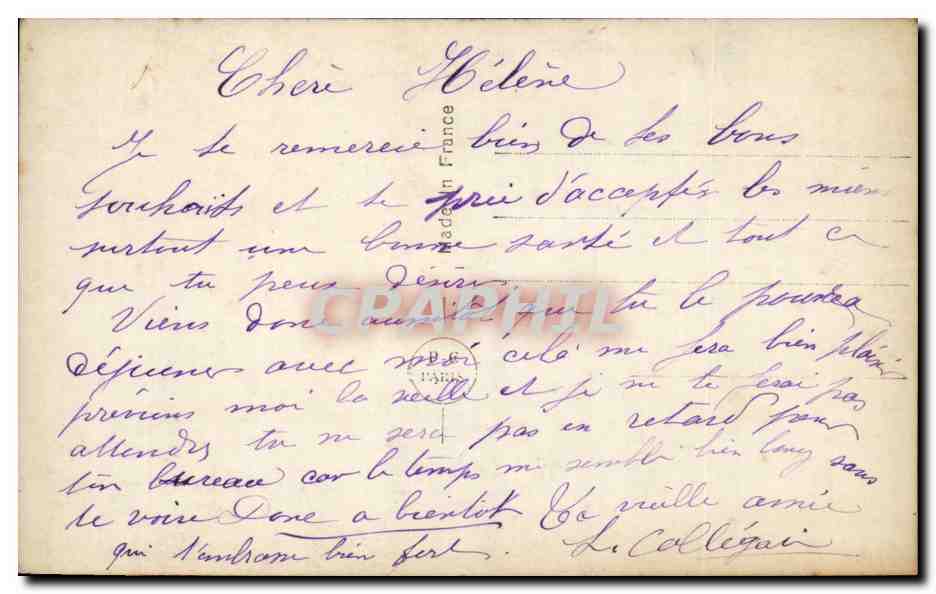 Chère Hélène
Je te remercie bien de tes bons
souhaits et te prie d'accepter les miens
surtout une bonne santé et tout ce
que tu peus désirer
Viens donc aussitôt que tu le pourra
déjeuner avec moi celà me fera bien plaisir
préviens moi la veille et je ne te ferai pas
attendre tu ne sera pas en retard pour
ton bureau car le temps me semble bien long sans
te voire Donc a bientôt Ta vieille amie
qui t'embrasse bien fort.
Made in France
PARIS
CPAPHIL